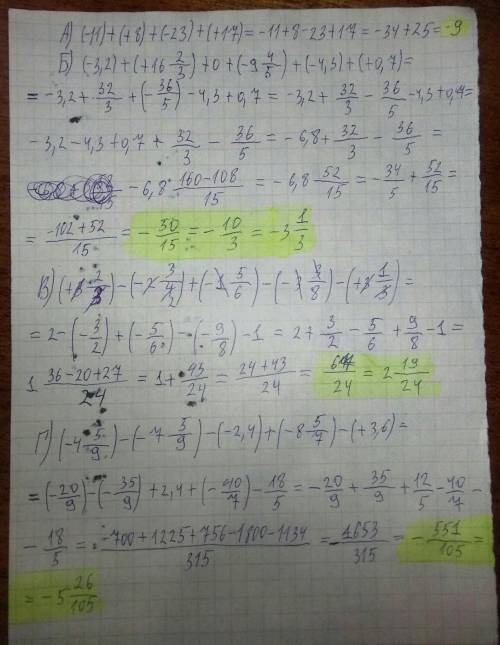 А) (-11)+(+8)+(-23)+(+17)=-11+8-23+17=-34+25=-9
Б) (-3,2)+(+16 2/3)+0+(-9 4/5)+(-4,3)+(+0,7)=
=-3,2+32/3+(-36/5)-4,3+0,7=-3,2+32/3-36/5-4,3+0,7=
-3,2-4,3+0,7+32/3-36/5=-6,8+32/3-36/5=
-6,8 160-108/15=-6,8 52/15=-34/5+52/15=
=-102+52/15=-50/15=-10/3=-3 1/3
=2-(-3/2)+(-5/6)-(-9/8)-1=2+3/2-5/6+9/8-1=
1 36-20+27/24=1+43/24=24+43/24=67/24=2 19/24
Г) (-4 5/9)-(-7 5/9)-(-2,4)+(-8 5/7)-(+3,6)=
=(-20/9)-(-35/9)+2,4+(-40/7)-18/5=-20/9+35/9+12/5-40/7-
-18/5=-700+1225+756-1800-1134/315=-1653/315=-551/105=
=-5 26/105